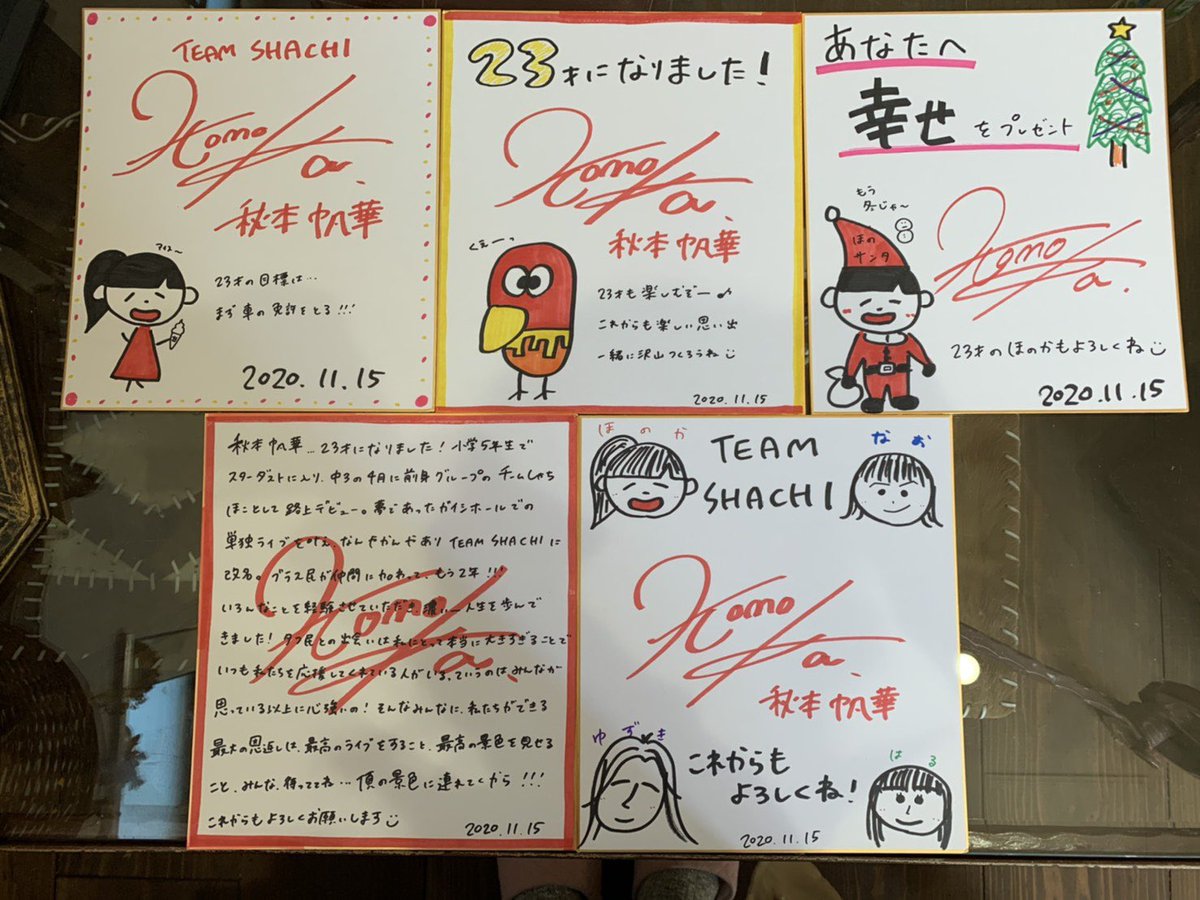 TEAM SHACHI
Homoka.
秋本帆華
アイス〜
23才の目標は…
まず車の免許をとる!!!
2020.11.15
23才になりました!
Homoka.
秋本帆華
くえーっ
23才も楽しむぞー♪
これからも楽しい思い出
一緒に沢山つくろうね
2020.11.15
あなたへ
幸せをプレゼント
もう
冬じゃ〜
ほの
サンタ
Homoka.
23才のほのかもよろしくね
2020.11.15
秋本帆華…23才になりました!小学5年生で
スターダストに入り、中3の4月に前身グループのチームしゃち
ほことして路上デビュー。夢であったガイシホールでの
単独ライブを叶え、なんやかんやあり TEAM SHACHIに
改名。ブラス民が仲間に加わって、もう2年!!!
いろんなことを経験させていただき濃いー人生を歩んで
きました!タフ民との出会いは私にとって本当に大きすぎることで
いつも私たちを応援してくれている人がいる、ていうのは、みんなが
思っている以上に心強いの!そんなみんなに、私たちができる
最大の恩返しは、最高のライブをすること、最高の景色を見せる
こと、みんな、待っててね…頂の景色に連れてくから!!!
これからもよろしくお願いします
2020.11.15
Homoka.
ほのか
TEAM
SHACHI
なお
Homoka.
秋本帆華
ゆずき
これからも
よろしくね!
はる
2020.11.15